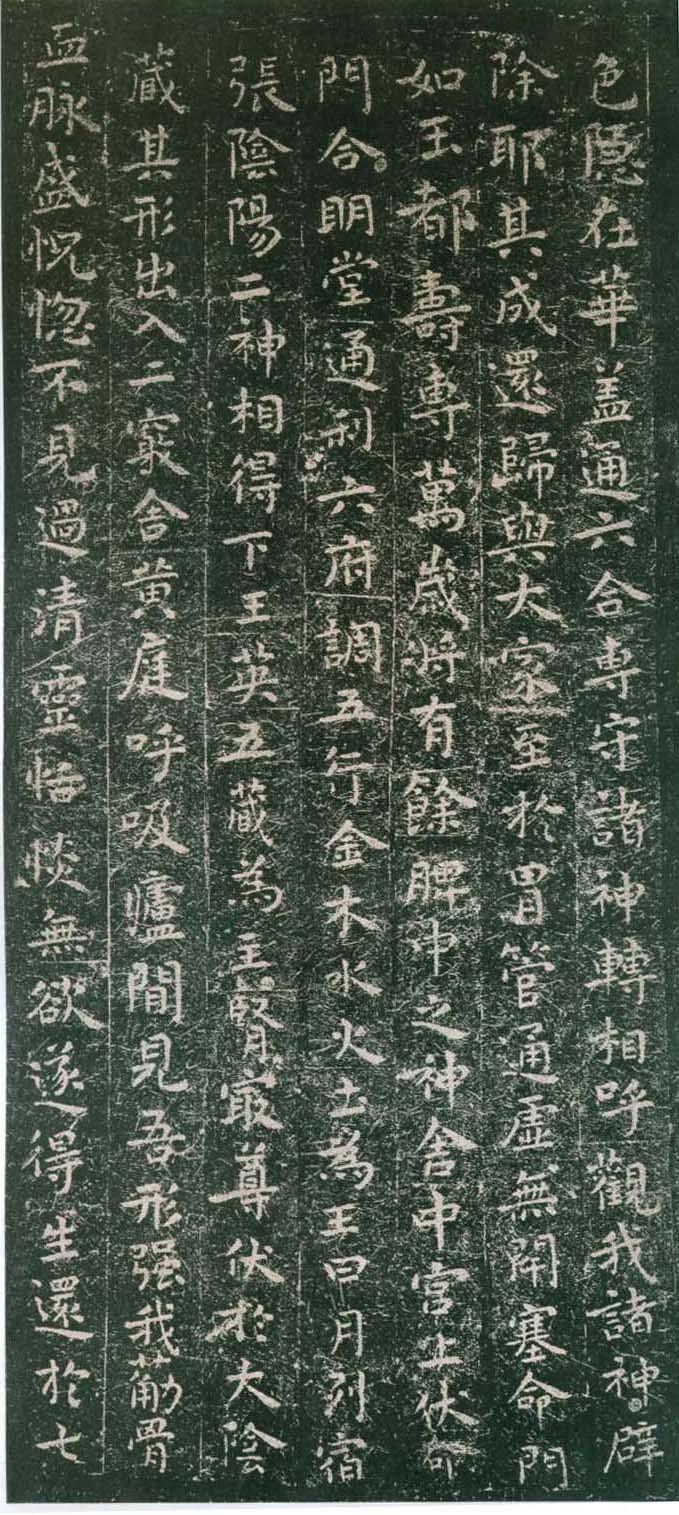 色隱在華盖通六合專守諸神轉相呼觀我諸神辟
除耶其成還歸與大家至於胃管通虛無閉塞命門
如玉都壽專萬歲將有餘脾中之神舍中宮上伏命
門合明堂通利六府調五行金木水火土為王日月列宿
張陰陽二神相得下玉英五藏為主腎最尊伏於大陰
藏其形出入二竅合黃庭呼吸廬間見吾形强我筋骨
血脉盛怳惚不見過清靈恬惔無欲遂得生還於七